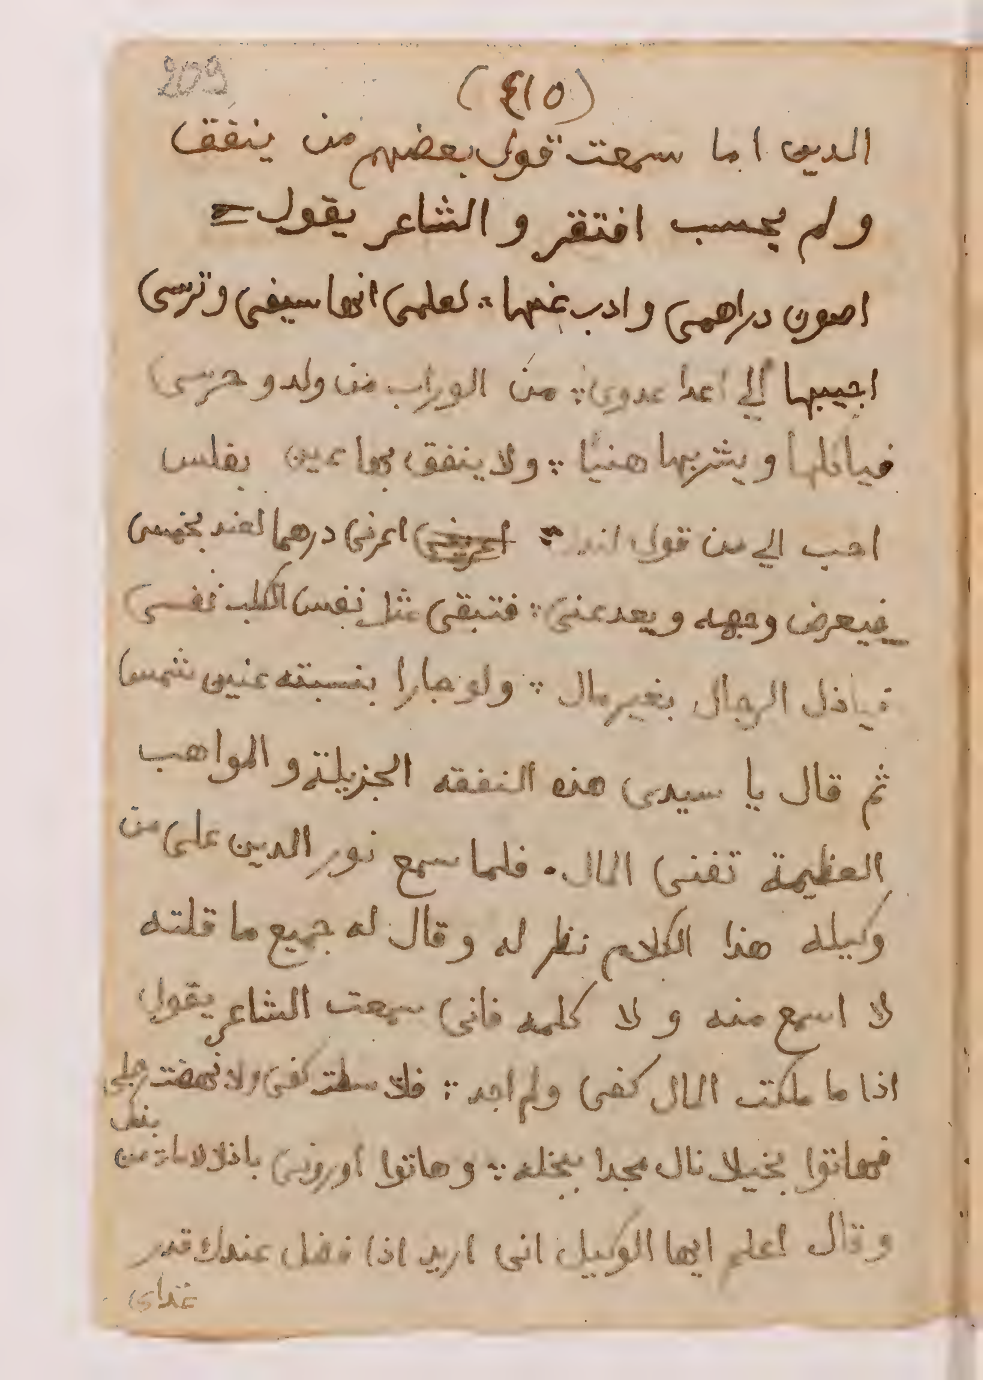 209
(٤١٥)
الدين اما سمعت قول بعضهم من ينفق
ولم يحسب افتقر والشاعر يقول
اصون دراهمى وادب عنها ؛ لعلمى انها سيفى وترسى
اجيبها الي اعدا عدوى ؛ من الوراب من ولد و حرسى
فياكلها ويشربها هنيا ؛ ولا ينفق بها عين بفلس
احب الي من قول لندل ؛ اعرنى درهما لغد بخمس
فيعرض وجهه ويعد عنى ؛ فتبقى مثل نفس الكلب نفسى
فياذل الرجال بغير مال ؛ ولو جارا بنسبته عنين شمس
ثم قال يا سيدى هذه النفقه الجزيلة والمواهب
العظيمة تفنى المال . فلما سمع نور الدين على من
وكيله هذا الكلام نظر له وقال له جميع ما قلته
لا اسمع منه ولا كلمه فانى سمعت الشاعر يقول
اذا ما ملكت المال كفى ولم اجد ؛ فلا سطت كفى ولا نهضت رجلى
فهاتوا بخيلا نال مجدا ببخله ؛ وهاتوا اورونى باذلا مات من بذل
وقال اعلم ايها الوكيل انى اريد اذا فضل عندك قدر
غداى